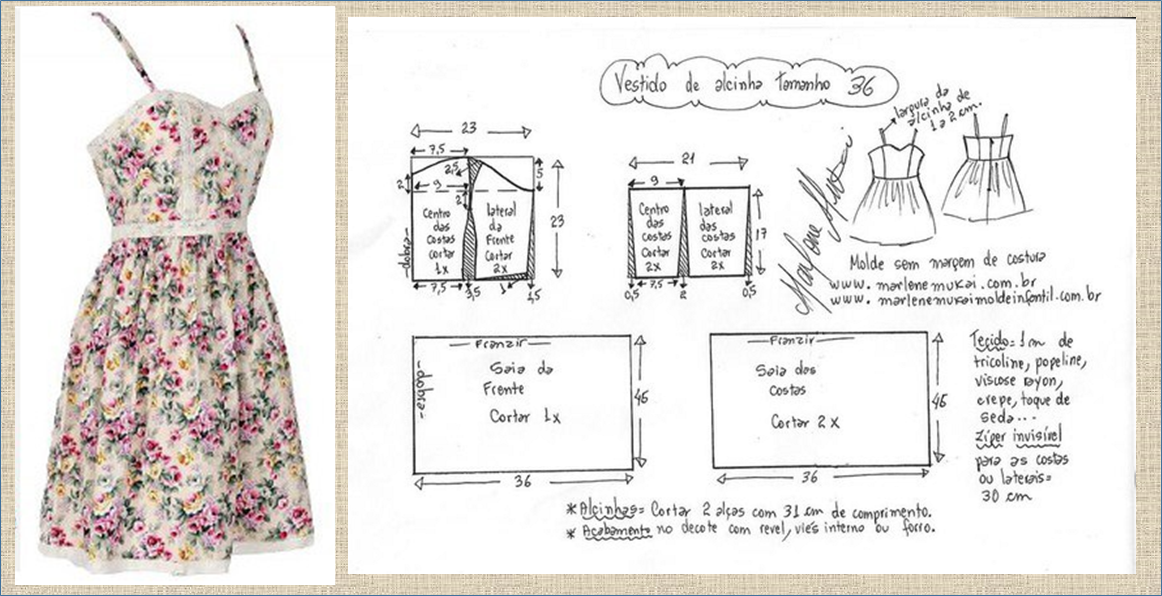 Vestido de alcinha Tamanho 36
largura da
alcinha de
1 a 2 cm.
23
7,5
2,5
5
2
9
2
23
Centro
das
Costas
Cortar
1x
lateral
da
Frente
Cortar
2x
-dobra-
7,5
3,5
1
1,5
21
9
17
Centro
das
costas
Cortar
2x
lateral
das
costas
Cortar
2x
0,5
7,5
2
0,5
Marlene Mukai
Molde sem margem de costura
www.marlenemukai.com.br
www.marlenemukaimoldeinfantil.com.br
Franzir
-dobra-
Saia da
Frente
Cortar 1x
45
36
Franzir
Saia das
Costas
Cortar 2x
45
36
Tecido= 1 m de
tricoline, popeline,
viscose rayon,
crepe, toque de
seda...
Zíper invisível
para as costas
ou laterais=
30 cm
*Alcinhas= Cortar 2 alças com 31 cm de comprimento.
* Acabamento no decote com revel, viés interno ou forro.